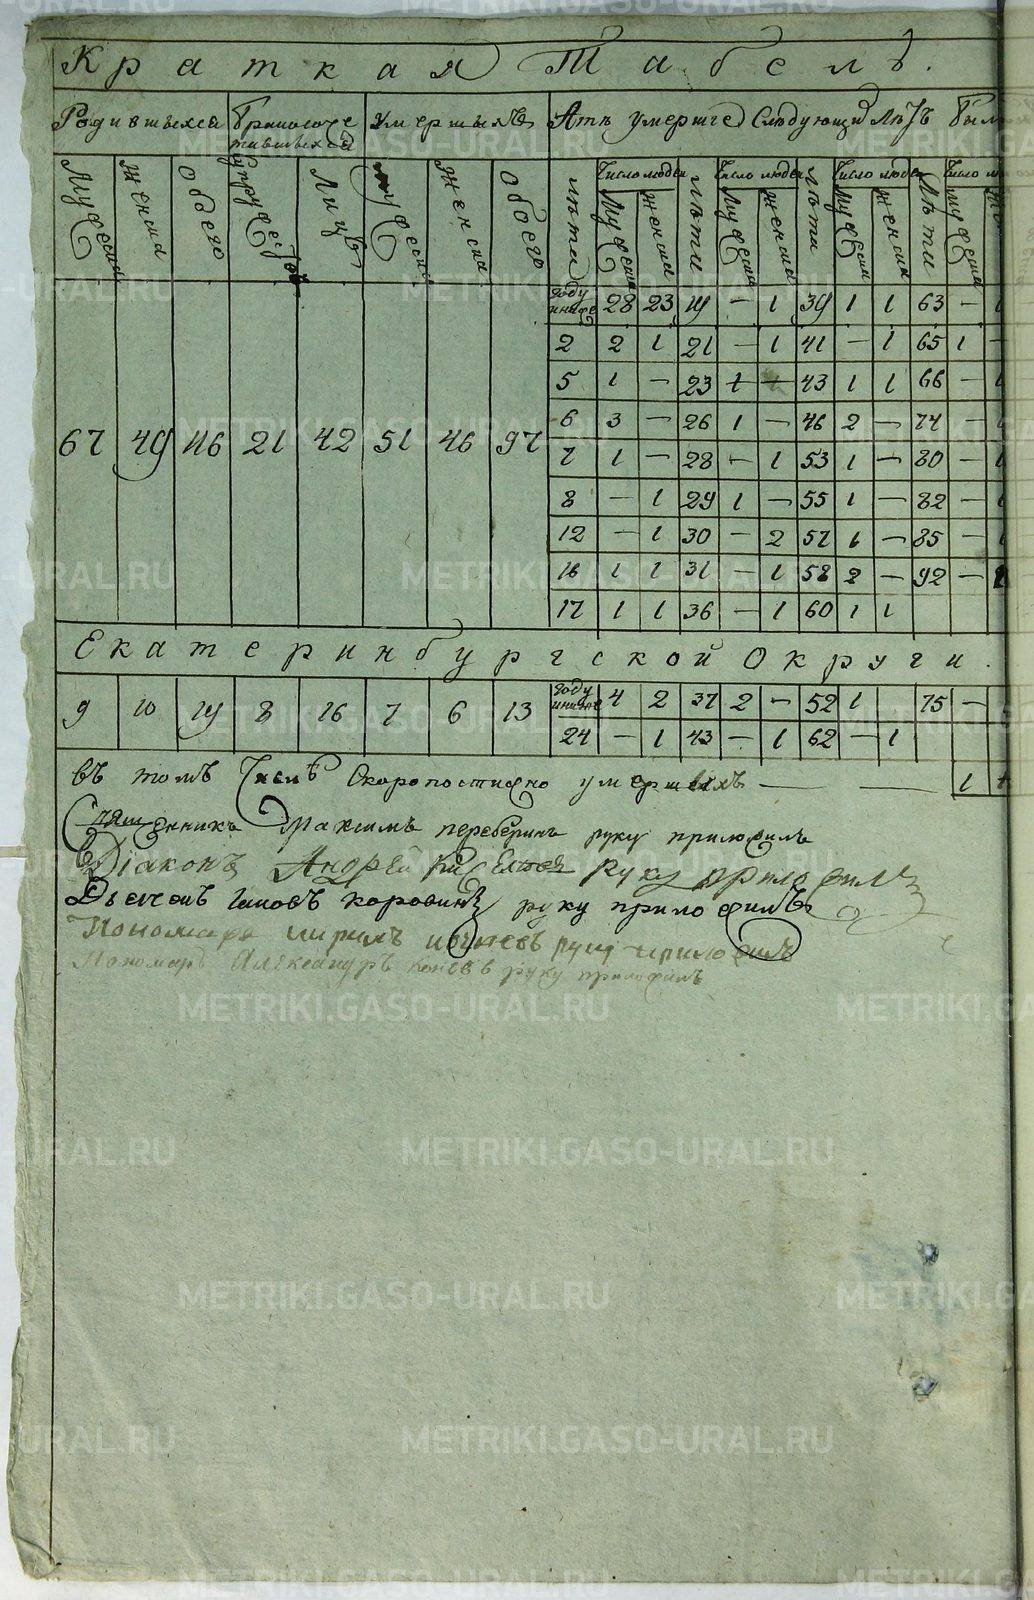 Краткая Табель.
Родившихся Бракосочетавшихся Умершихъ Атъ умершіе Слѣдующихъ Лѣтъ Были
Мужеска Женска Обоего Супружествъ Лицъ Мужеска Женска Обоего Лѣта Число людей Мужеска Женска Лѣта Число людей Мужеска Женска Лѣта Число людей Мужеска Женска Лѣта Мужеска
67 49 116 21 42 51 46 97
году и ниже 28 23 19 — 1 39 1 1 63 —
2 2 1 21 — 1 41 — 1 65 1 —
5 1 — 23 43 1 1 66 —
6 3 — 26 1 — 46 2 — 74 —
7 1 — 28 — 1 53 1 — 80 —
8 — 1 29 1 — 55 1 — 82 —
12 — 1 30 — 2 57 — 85 —
16 1 1 31 — 1 58 2 — 92 —
17 1 1 36 — 1 60 1 1
Екатеринбургской Округи.
9 10 19 8 16 7 6 13
году и ниже 4 2 37 2 — 52 1 75 —
24 — 1 43 — 1 62 — 1
въ томъ Числѣ Скоропостижно умершихъ — — 1
Священникъ Максимъ руку приложилъ
Діаконъ Андрей руку приложилъ
Дьячекъ Іаковъ Коровинъ руку приложилъ
Пономарь Кирилъ руку приложилъ
Пономарь Александръ руку приложилъ
METRIKI.GASO-URAL.RU